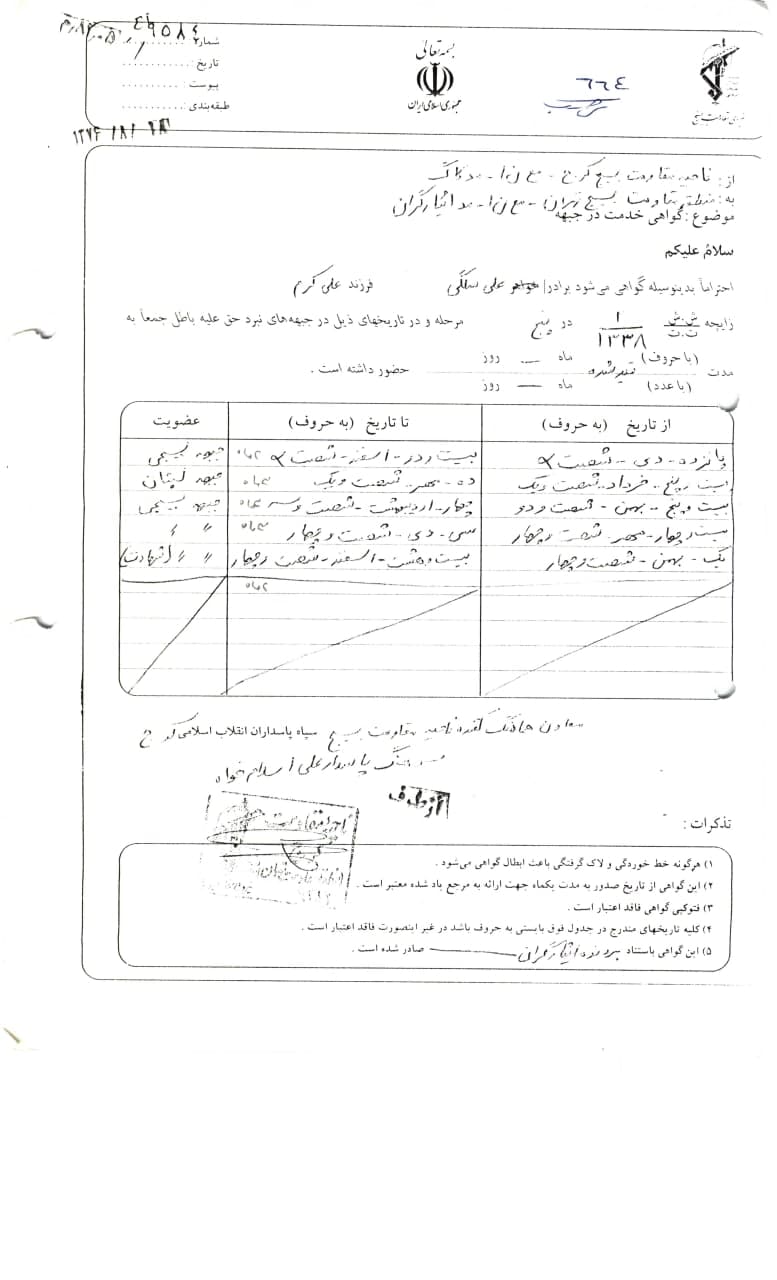 بسمه تعالی
جمهوری اسلامی ایران
شماره
تاریخ :
پیوست :
طبقه‌بندی :
۱۳۷۴/۸/۲۳
۶۶۴
از : ناحیه مقاومت بسیج کرج -
به : منطقه مقاومت بسیج تهران - ایثارگران
موضوع : گواهی خدمت در جبهه
سلامُ علیکم
احتراماً بدینوسیله گواهی می‌شود برادر/خواهر علی فرزند علی کرم
زایجه ش.ش ۱ در پنج مرحله و در تاریخهای ذیل در جبهه‌های نبرد حق علیه باطل جمعاً به
ت.ت ۱۳۳۸
مدت (با حروف) قید شده ماه — روز
(با عدد) ماه — روز حضور داشته است .
از تاریخ (به حروف) تا تاریخ (به حروف) عضویت
پانزده - دی - شصت بیست و دو - اسفند - شصت ۲ ماه جبهه بسیجی
بیست و پنج - خرداد - شصت و یک ده - مهر - شصت و یک ۳ ماه جبهه لبنان
بیست و پنج - بهمن - شصت و دو چهار - اردیبهشت - شصت و سه جبهه بسیجی
بیست و چهار - مهر - شصت و چهار سی - دی - شصت و چهار ۳ ماه 〃 〃
یک - بهمن - شصت و چهار بیست و هشت - اسفند - شصت و چهار 〃 〃 (شهادت)
۲ ماه
معاون هماهنگ کننده ناحیه مقاومت بسیج سپاه پاسداران انقلاب اسلامی کرج
سرهنگ پاسدار علی اسلام خواه
از طرف
تذکرات :
۱) هرگونه خط خوردگی و لاک گرفتگی باعث ابطال گواهی می‌شود .
۲) این گواهی از تاریخ صدور به مدت یکماه جهت ارائه به مرجع یاد شده معتبر است .
۳) فتوکپی گواهی فاقد اعتبار است .
۴) کلیه تاریخهای مندرج در جدول فوق بایستی به حروف باشد در غیر اینصورت فاقد اعتبار است .
۵) این گواهی باستناد پرونده ایثارگران صادر شده است .